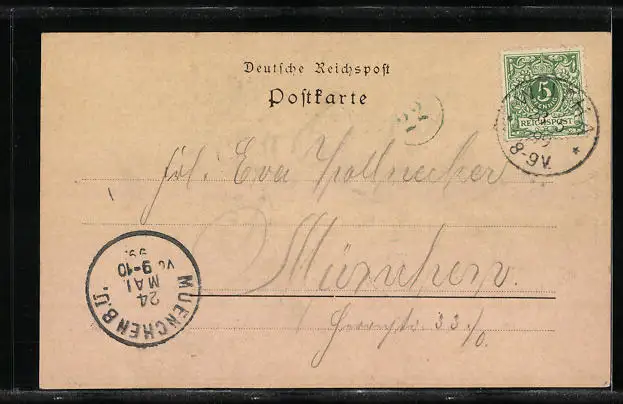 Deutsche Reichspost
Postkarte
5
REICHSPOST
8-9V.
22
Frl. Eva
München.
33/0.
MUENCHEN B.D.
24
MAI
VO 9-10
99